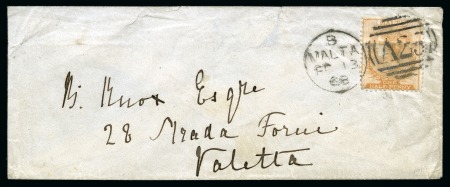 S
MALTA
13
68
A25
HALFPENNY
B. Knox Esqre
28 Strada Forni
Valetta